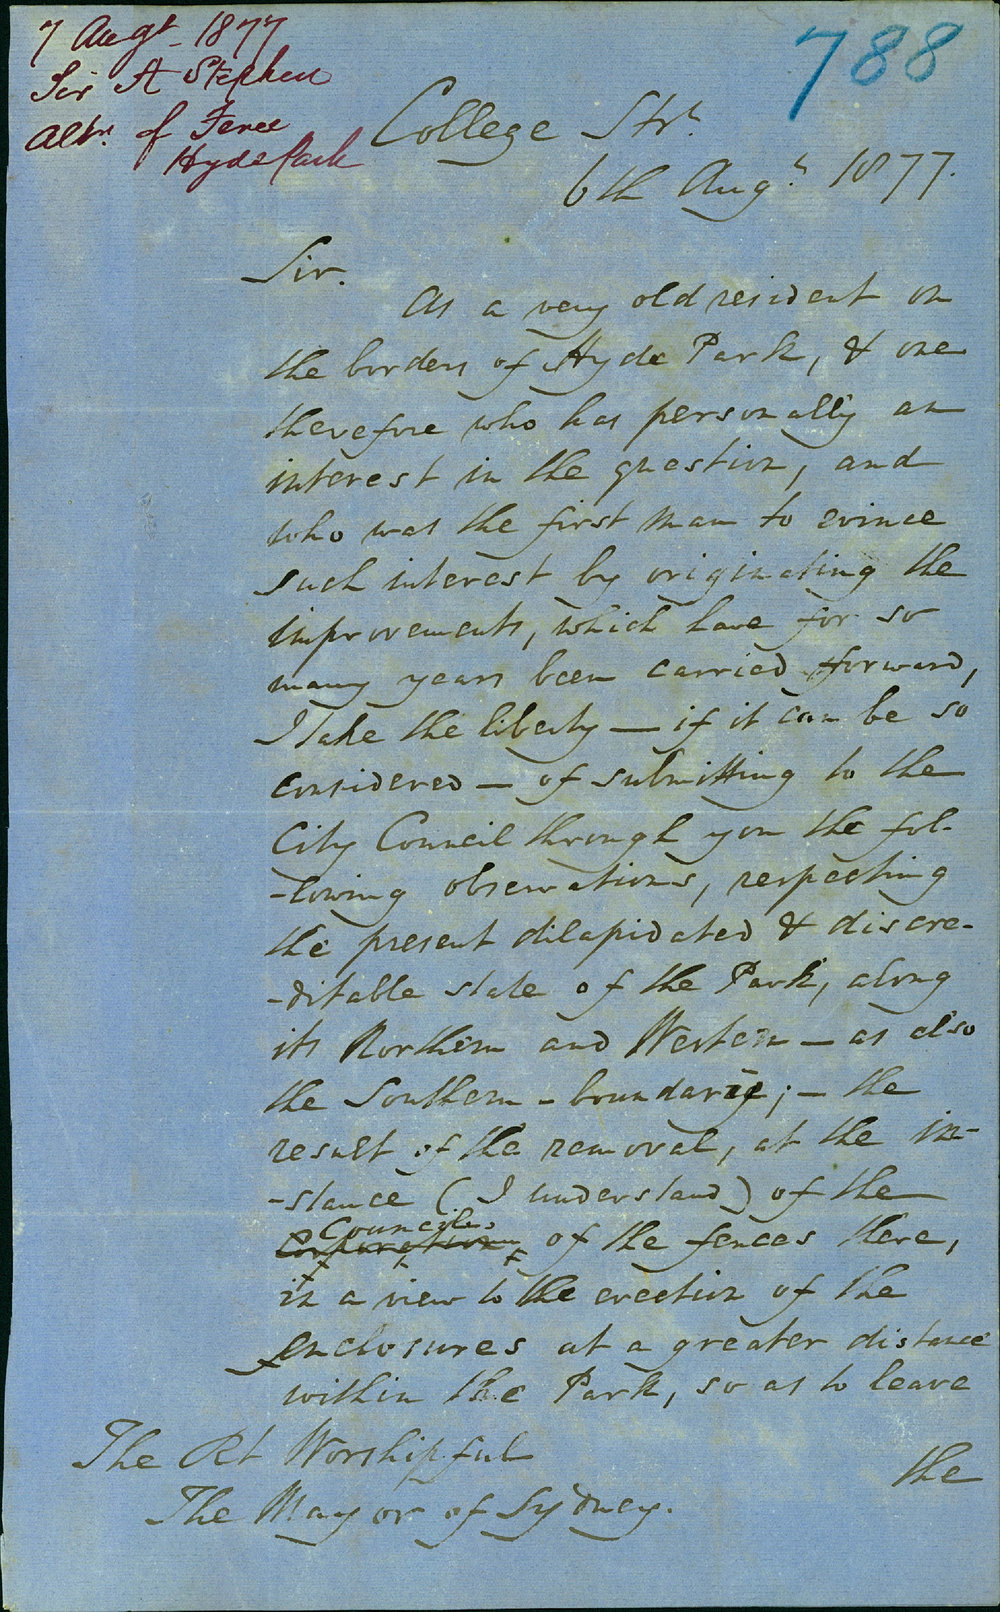 7 Augt. 1877
Sir A Stephen
Altn. of Fence
Hyde Park
788
College Strt.
6th Augt. 1877.
Sir.
As a very old resident on
the borders of Hyde Park, & one
therefore who has personally an
interest in the question, and
who was the first man to evince
such interest by originating the
improvements, which have for so
many years been carried forward,
I take the liberty — if it can be so
considered — of submitting to the
City Council through you the fol-
-lowing observations, respecting
the present dilapidated & discre-
-ditable state of the Park, along
its Northern and Western — as also
the Southern - boundary; — the
result of the removal, at the in-
-stance (I understand) of the
Council,
Corporation, of the fences there,
in a view to the erection of the
enclosures at a greater distance
within the Park, so as to leave
the
The Rt Worshipful
The Mayor of Sydney.